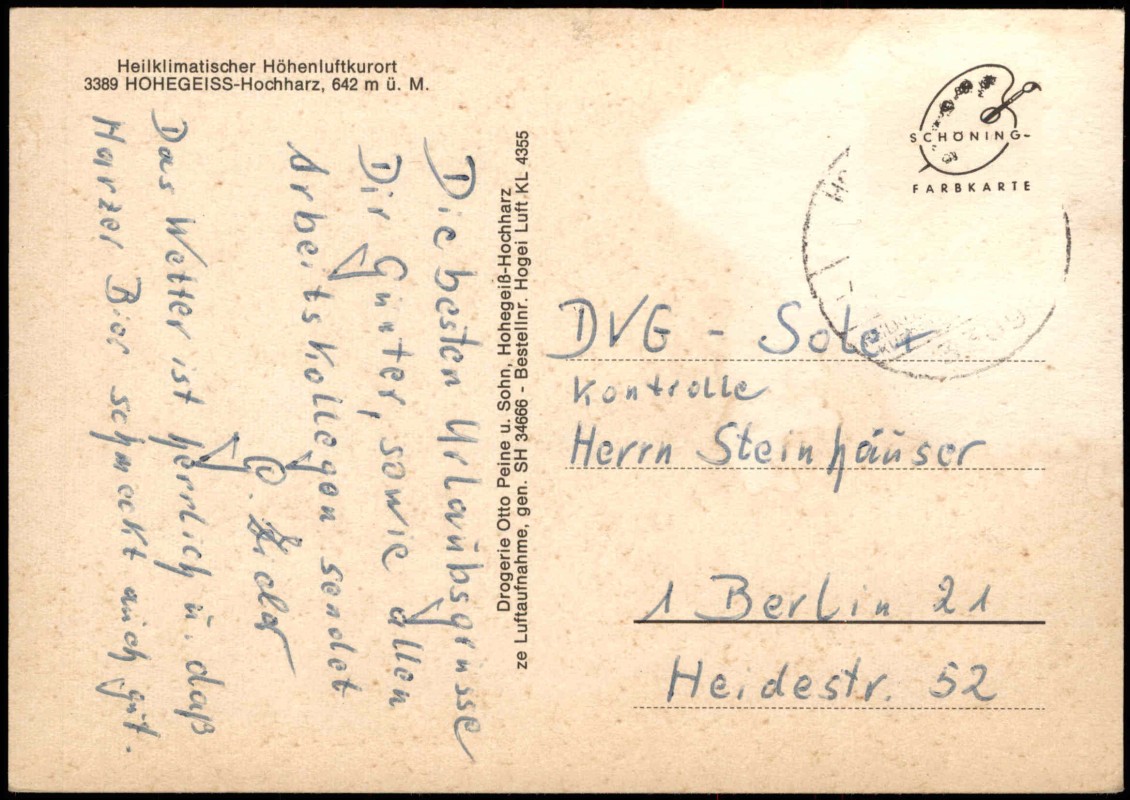 Heilklimatischer Höhenluftkurort
3389 HOHEGEISS-Hochharz, 642 m ü. M.
Die besten Urlaubsgrüsse
Dir Günter, sowie allen
Arbeitskollegen sendet
G.
Das Wetter ist herrlich u. daß
Harzer Bier schmeckt auch gut.
Drogerie Otto Peine u. Sohn, Hohegeiß-Hochharz
ze Luftaufnahme, gen. SH 34666 - Bestellnr. Hogei Luft KL 4355
SCHÖNING-
FARBKARTE
DVG - Soler
Kontrolle
Herrn Steinhäuser
1 Berlin 21
Heidestr. 52